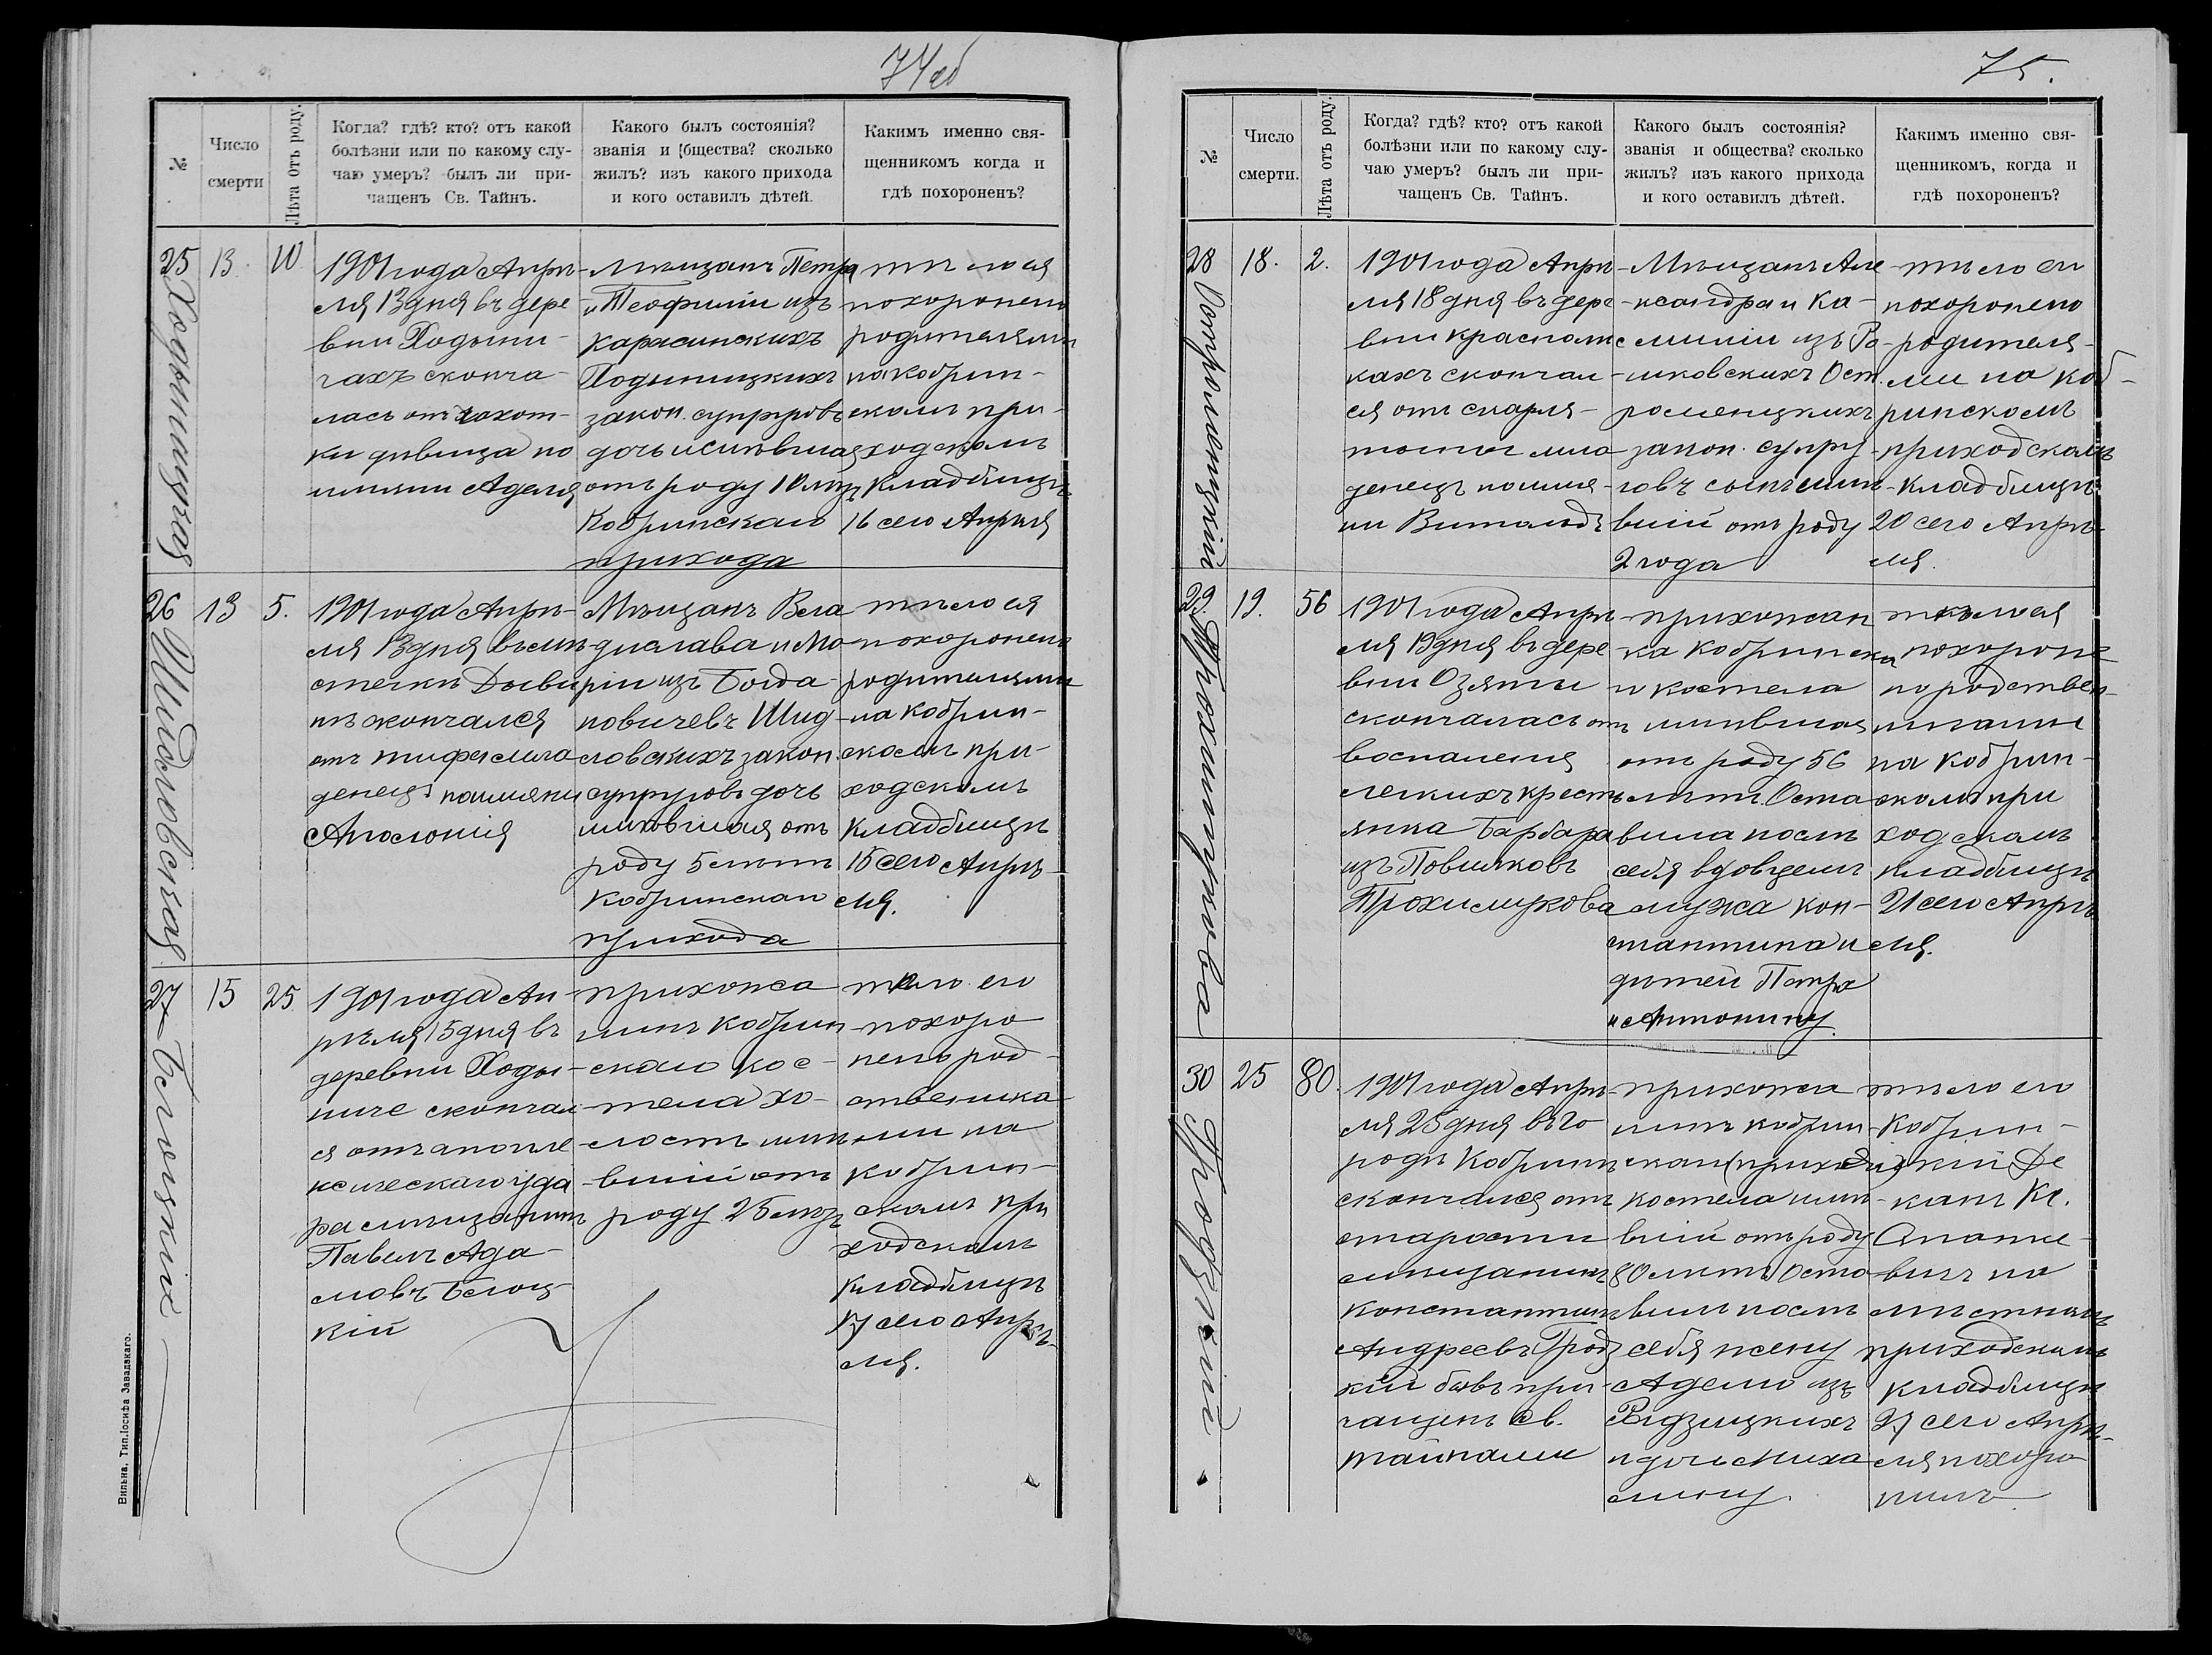 74 об
№
Число
смерти
Лѣта отъ роду.
Когда? гдѣ? кто? отъ какой
болѣзни или по какому слу-
чаю умеръ? былъ ли при-
чащенъ Св. Тайнъ.
Какого былъ состоянія?
званія и общества? сколько
жилъ? изъ какого прихода
и кого оставилъ дѣтей.
Какимъ именно свя-
щенникомъ когда и
гдѣ похороненъ?
25
Ходыницкая
13.
10
1901 года Апрѣ-
ля 13 дня въ дере
вни Ходыни-
чахъ сконча-
лась отъ чахот-
ки дѣвица по
имяни Аделя
Мѣщанъ Петра
и Теофиліи изъ
Карасинскихъ
Ходыницкихъ
закон. супруговъ
дочь жившая
отъ роду 10 лѣтъ
Кобринскаго
прихода
тѣло ея
похоронено
родителями
на Кобрин-
скомъ при-
ходскомъ
кладбищѣ
16 сего Апрѣля
26
Шидловская
13
5.
1901 года Апрѣ-
ля 13 дня въ мѣ-
стечкѣ Дыви
нѣ скончался
отъ тифа мла
денецъ по имяни
Аполонія
Мѣщанъ Вла
дислава и Ма
ріи изъ Богда-
новичевъ Шид-
ловскихъ закон.
супруговъ дочь
жившая отъ
роду 5 лѣтъ
Кобринскаго
прихода
тѣло ея
похоронено
родителями
на Кобрин-
скомъ при-
ходскомъ
кладбищѣ
15 сего Апрѣ-
ля.
27
Белоцкій
15
25
1901 года Ап-
рѣля 15 дня въ
деревни Ходы-
ниче скончал
ся отъ апопле
ксическаго уда
ра мѣщанинъ
Павелъ Ада-
мовъ Белоц-
кій
прихожа
нинъ Кобрин
скаго кос-
тела хо-
лостъ жив
шій отъ
роду 25 лѣтъ
тѣло его
похоро
нено род-
ственника
ми на
Кобрин-
скомъ при
ходскомъ
кладбищѣ
17 сего Апрѣ-
ля.
Вильна. Тип. Іосифа Завадзкаго.
75.
№
Число
смерти.
Лѣта отъ роду.
Когда? гдѣ? кто? отъ какой
болѣзни или по какому слу-
чаю умеръ? былъ ли при-
чащенъ Св. Тайнъ.
Какого былъ состоянія?
званія и общества? сколько
жилъ? изъ какого прихода
и кого оставилъ дѣтей.
Какимъ именно свя-
щенникомъ, когда и
гдѣ похороненъ?
28
Остроменцкій
18.
2.
1901 года Апрѣ
ля 18 дня въ дере
вни
кахъ скончал-
ся отъ скарля-
тины мла
денецъ по имя-
ни Витольдъ
Мѣщанъ Але
ксандра и Ка-
миліи изъ
Ост
роменцкихъ
закон. супру
говъ сынъ жив
шій отъ роду
2 года
тѣло ея
похоронено
родителя-
ми на Коб-
ринскомъ
приходскомъ
кладбищѣ
20 сего Апрѣ-
ля.
29.
Трохимчукова
19.
56
1901 года Апрѣ
ля 19 дня въ дере
вни Озяты
скончалась отъ
воспаленія
легкихъ кресть
янка Барбара
изъ
Трохимчукова
прихожан
ка Кобринска
го костела
жившая
отъ роду 56
лѣтъ. Оста
вила послѣ
себя вдовцемъ
мужа Кон-
стантина и
дѣтей Петра
и Антонину.
тѣло ея
похороне
но родствен-
никами
на Кобрин-
скомъ при
ходскомъ
кладбищѣ
21 сего Апрѣ
ля.
30
Гродзскій
25
80.
1901 года Апрѣ-
ля 25 дня въ го
роде Кобринѣ
скончался отъ
старости
мѣщанинъ
Константинъ
Андреевъ Гродз
кій бывъ при
чащенъ Св.
тайнами
прихожа
нинъ Кобрин
скаго (прихода)
костела жив-
шій отъ роду
80 лѣтъ Оста
вилъ послѣ
себя жену
Аделю изъ
и дочь Миха
лину.
тѣло его
Кобрин-
скій Де
канъ Кс.
на
мѣстномъ
приходскомъ
кладбищѣ
27 сего Апрѣ-
ля похоро
нилъ